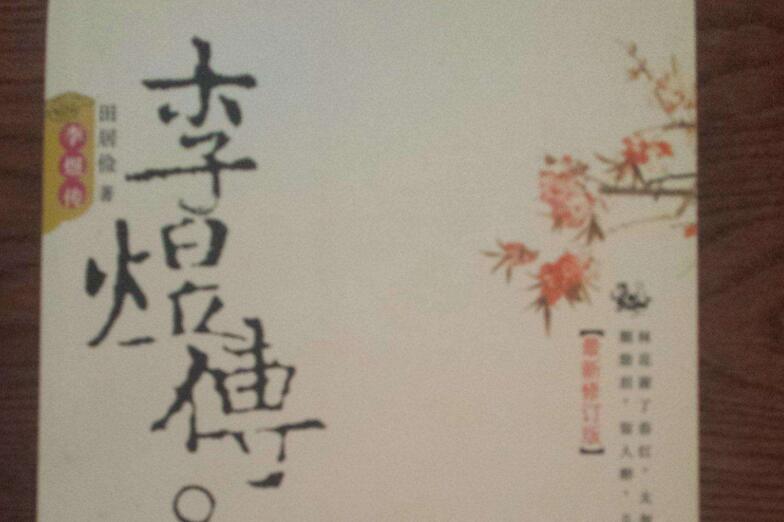 李煜傳
田居俭 著
李煜传
【最新修订版】
林花谢了春红，太
胭脂泪，留人醉，